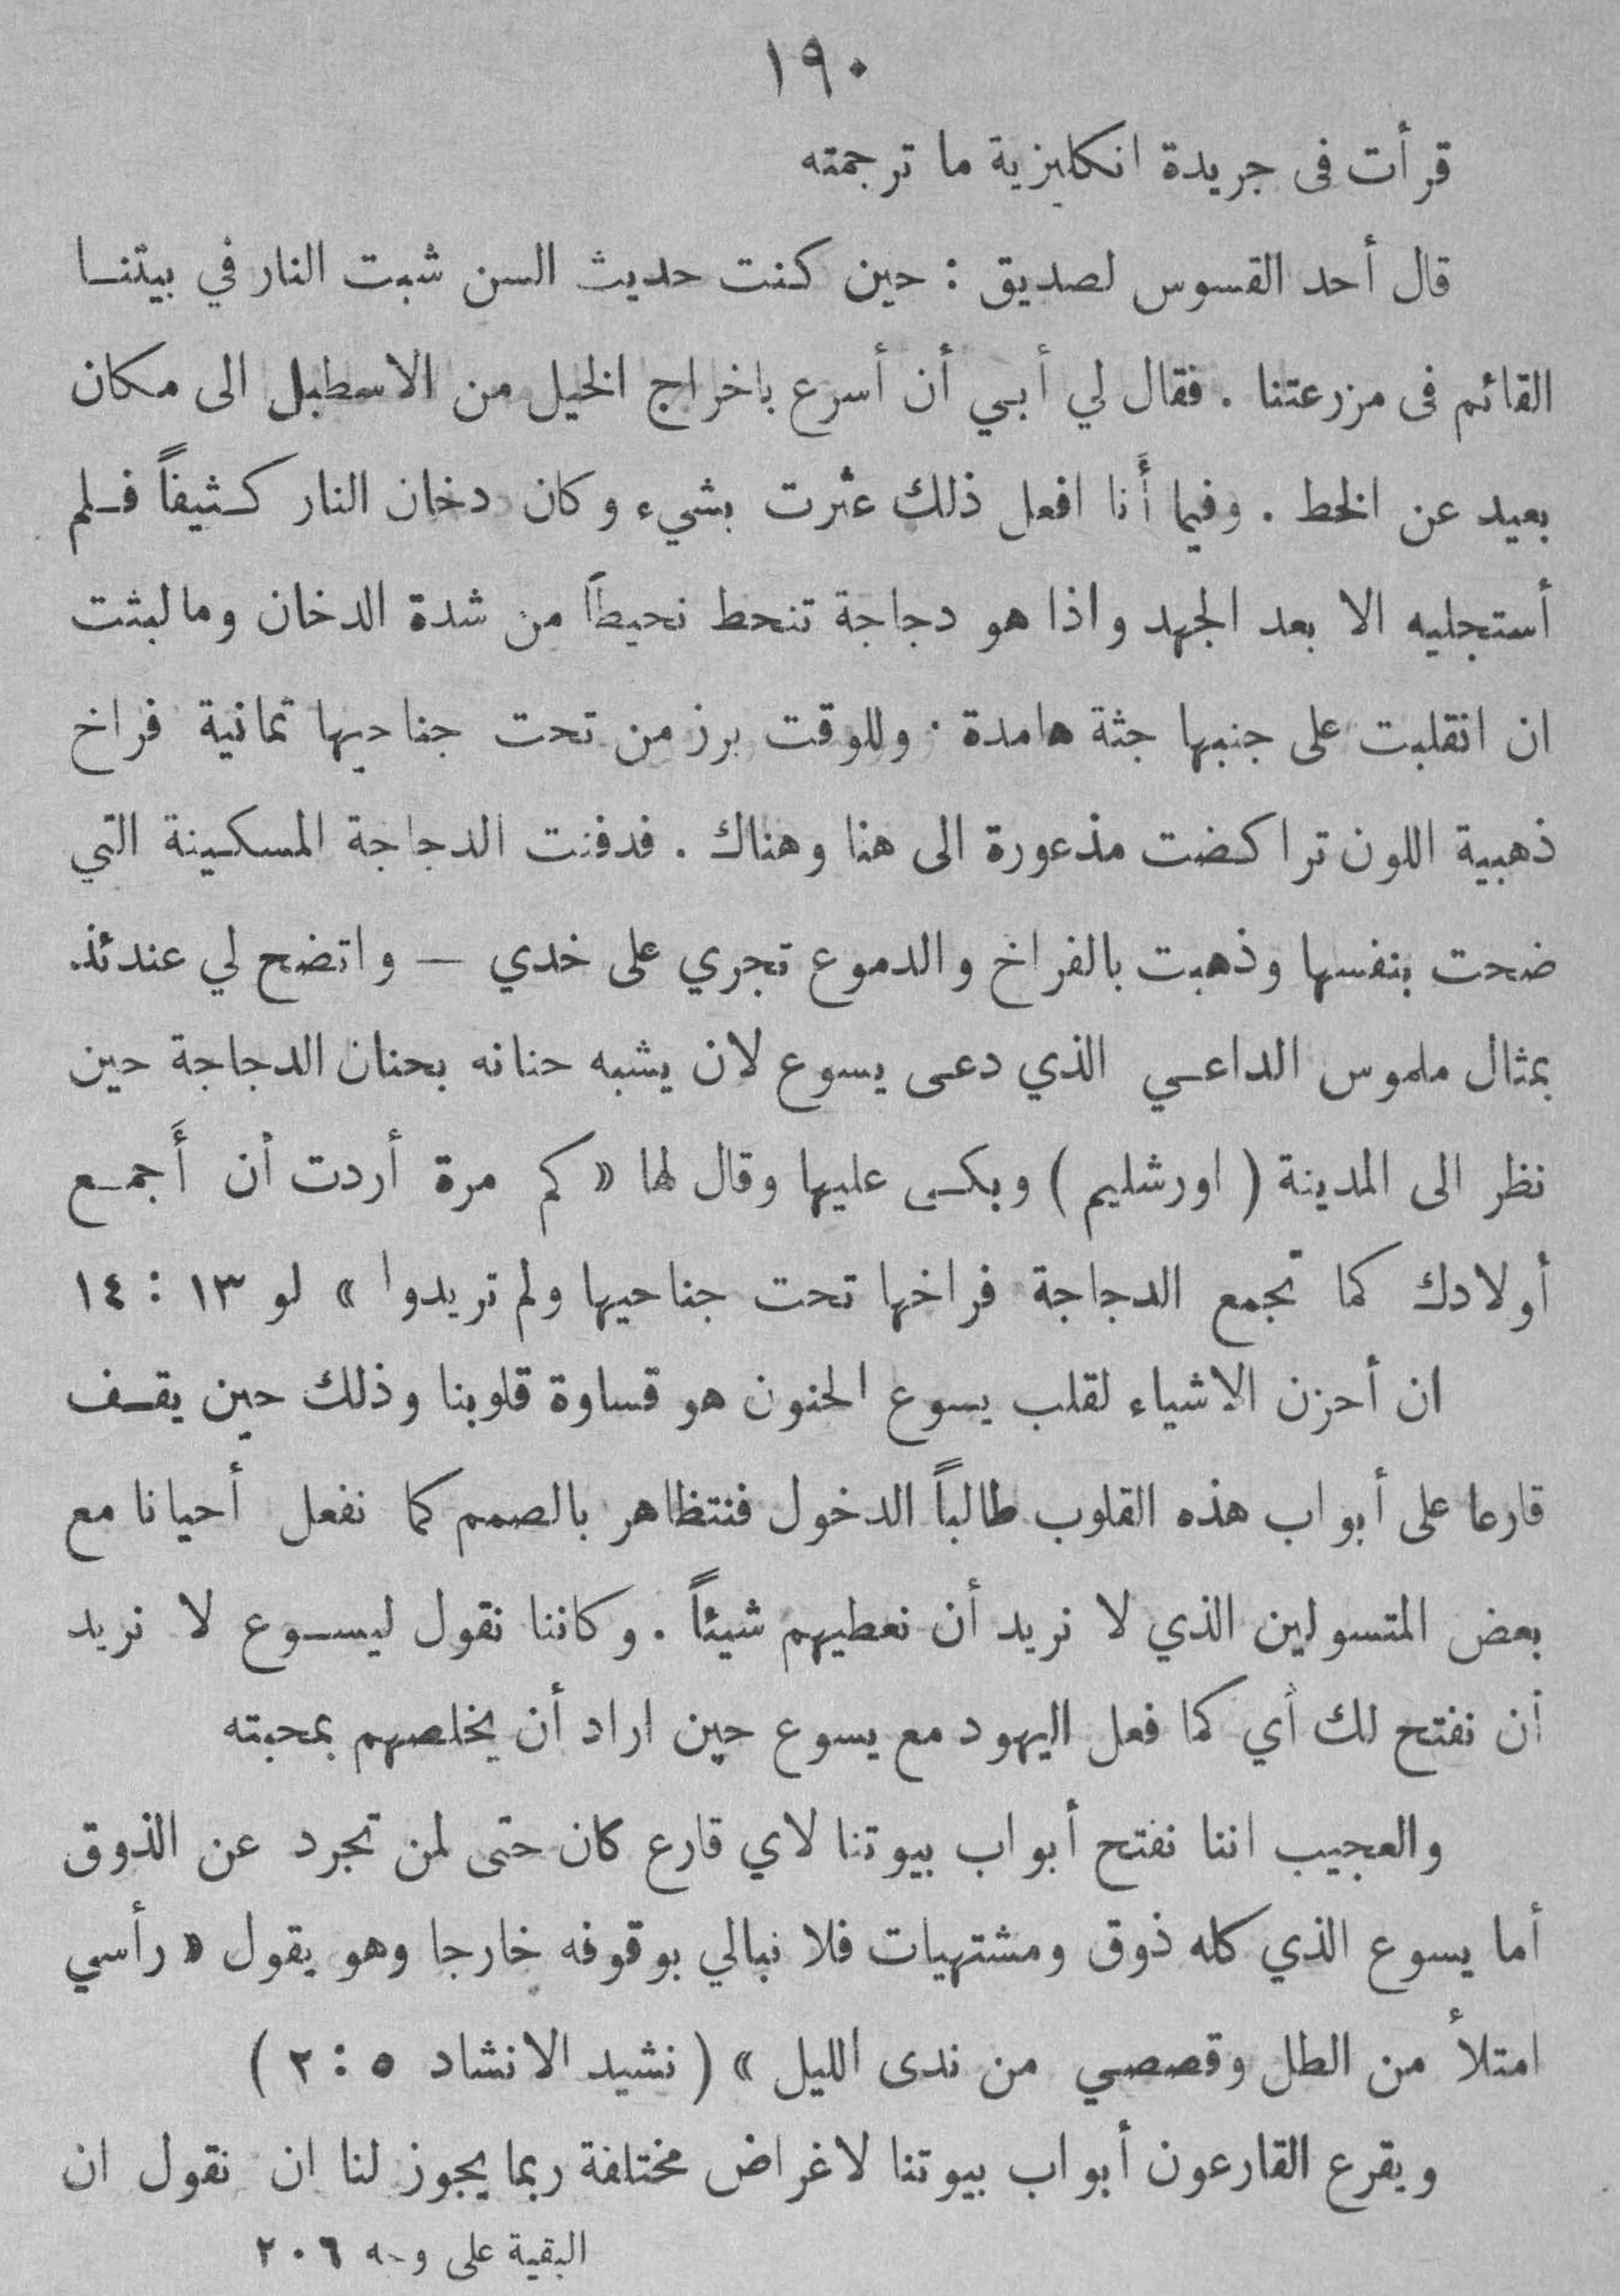 ١٩٠
قرأت فى جريدة انكليزية ما ترجمته
قال أحد القسوس لصديق : حين كنت حديث السن شبت النار في بيتنا
القائم فى مزرعتنا . فقال لي أبي أن أسرع باخراج الخيل من الاسطبل الى مكان
بعيد عن الخط . وفيما أنا افعل ذلك عثرت بشيء وكان دخان النار كثيفاً فلم
أستجليه الا بعد الجهد واذا هو دجاجة تنحط نحيطاً من شدة الدخان وما لبثت
ان انقلبت على جنبها جثة هامدة . وللوقت برز من تحت جناحيها ثمانية فراخ
ذهبية اللون تراكضت مذعورة الى هنا وهناك . فدفنت الدجاجة المسكينة التي
ضحت بنفسها وذهبت بالفراخ والدموع تجري على خدي — واتضح لي عندئذ
بمثال ملموس الداعي الذي دعى يسوع لان يشبه حنانه بحنان الدجاجة حين
نظر الى المدينة ( اورشليم ) وبكى عليها وقال لها « كم مرة أردت أن أَجمع
أولادك كما تجمع الدجاجة فراخها تحت جناحيها ولم تريدوا » لو ١٣ : ١٤
ان أحزن الاشياء لقلب يسوع الحنون هو قساوة قلوبنا وذلك حين يقف
قارعا على أبواب هذه القلوب طالباً الدخول فنتظاهر بالصمم كما نفعل أحيانا مع
بعض المتسولين الذي لا نريد أن نعطيهم شيئاً . وكاننا نقول ليسوع لا نريد
أن نفتح لك أي كما فعل اليهود مع يسوع حين اراد أن يخلصهم بمحبته
والعجيب اننا نفتح أبواب بيوتنا لاي قارع كان حتى لمن تجرد عن الذوق
أما يسوع الذي كله ذوق ومشتهيات فلا نبالي بوقوفه خارجا وهو يقول « رأسي
امتلأ من الطل وقصصي من ندى الليل » ( نشيد الانشاد ٥ : ٢ )
ويقرع القارعون أبواب بيوتنا لاغراض مختلفة ربما يجوز لنا ان نقول ان
البقية على وجه ٢٠٦